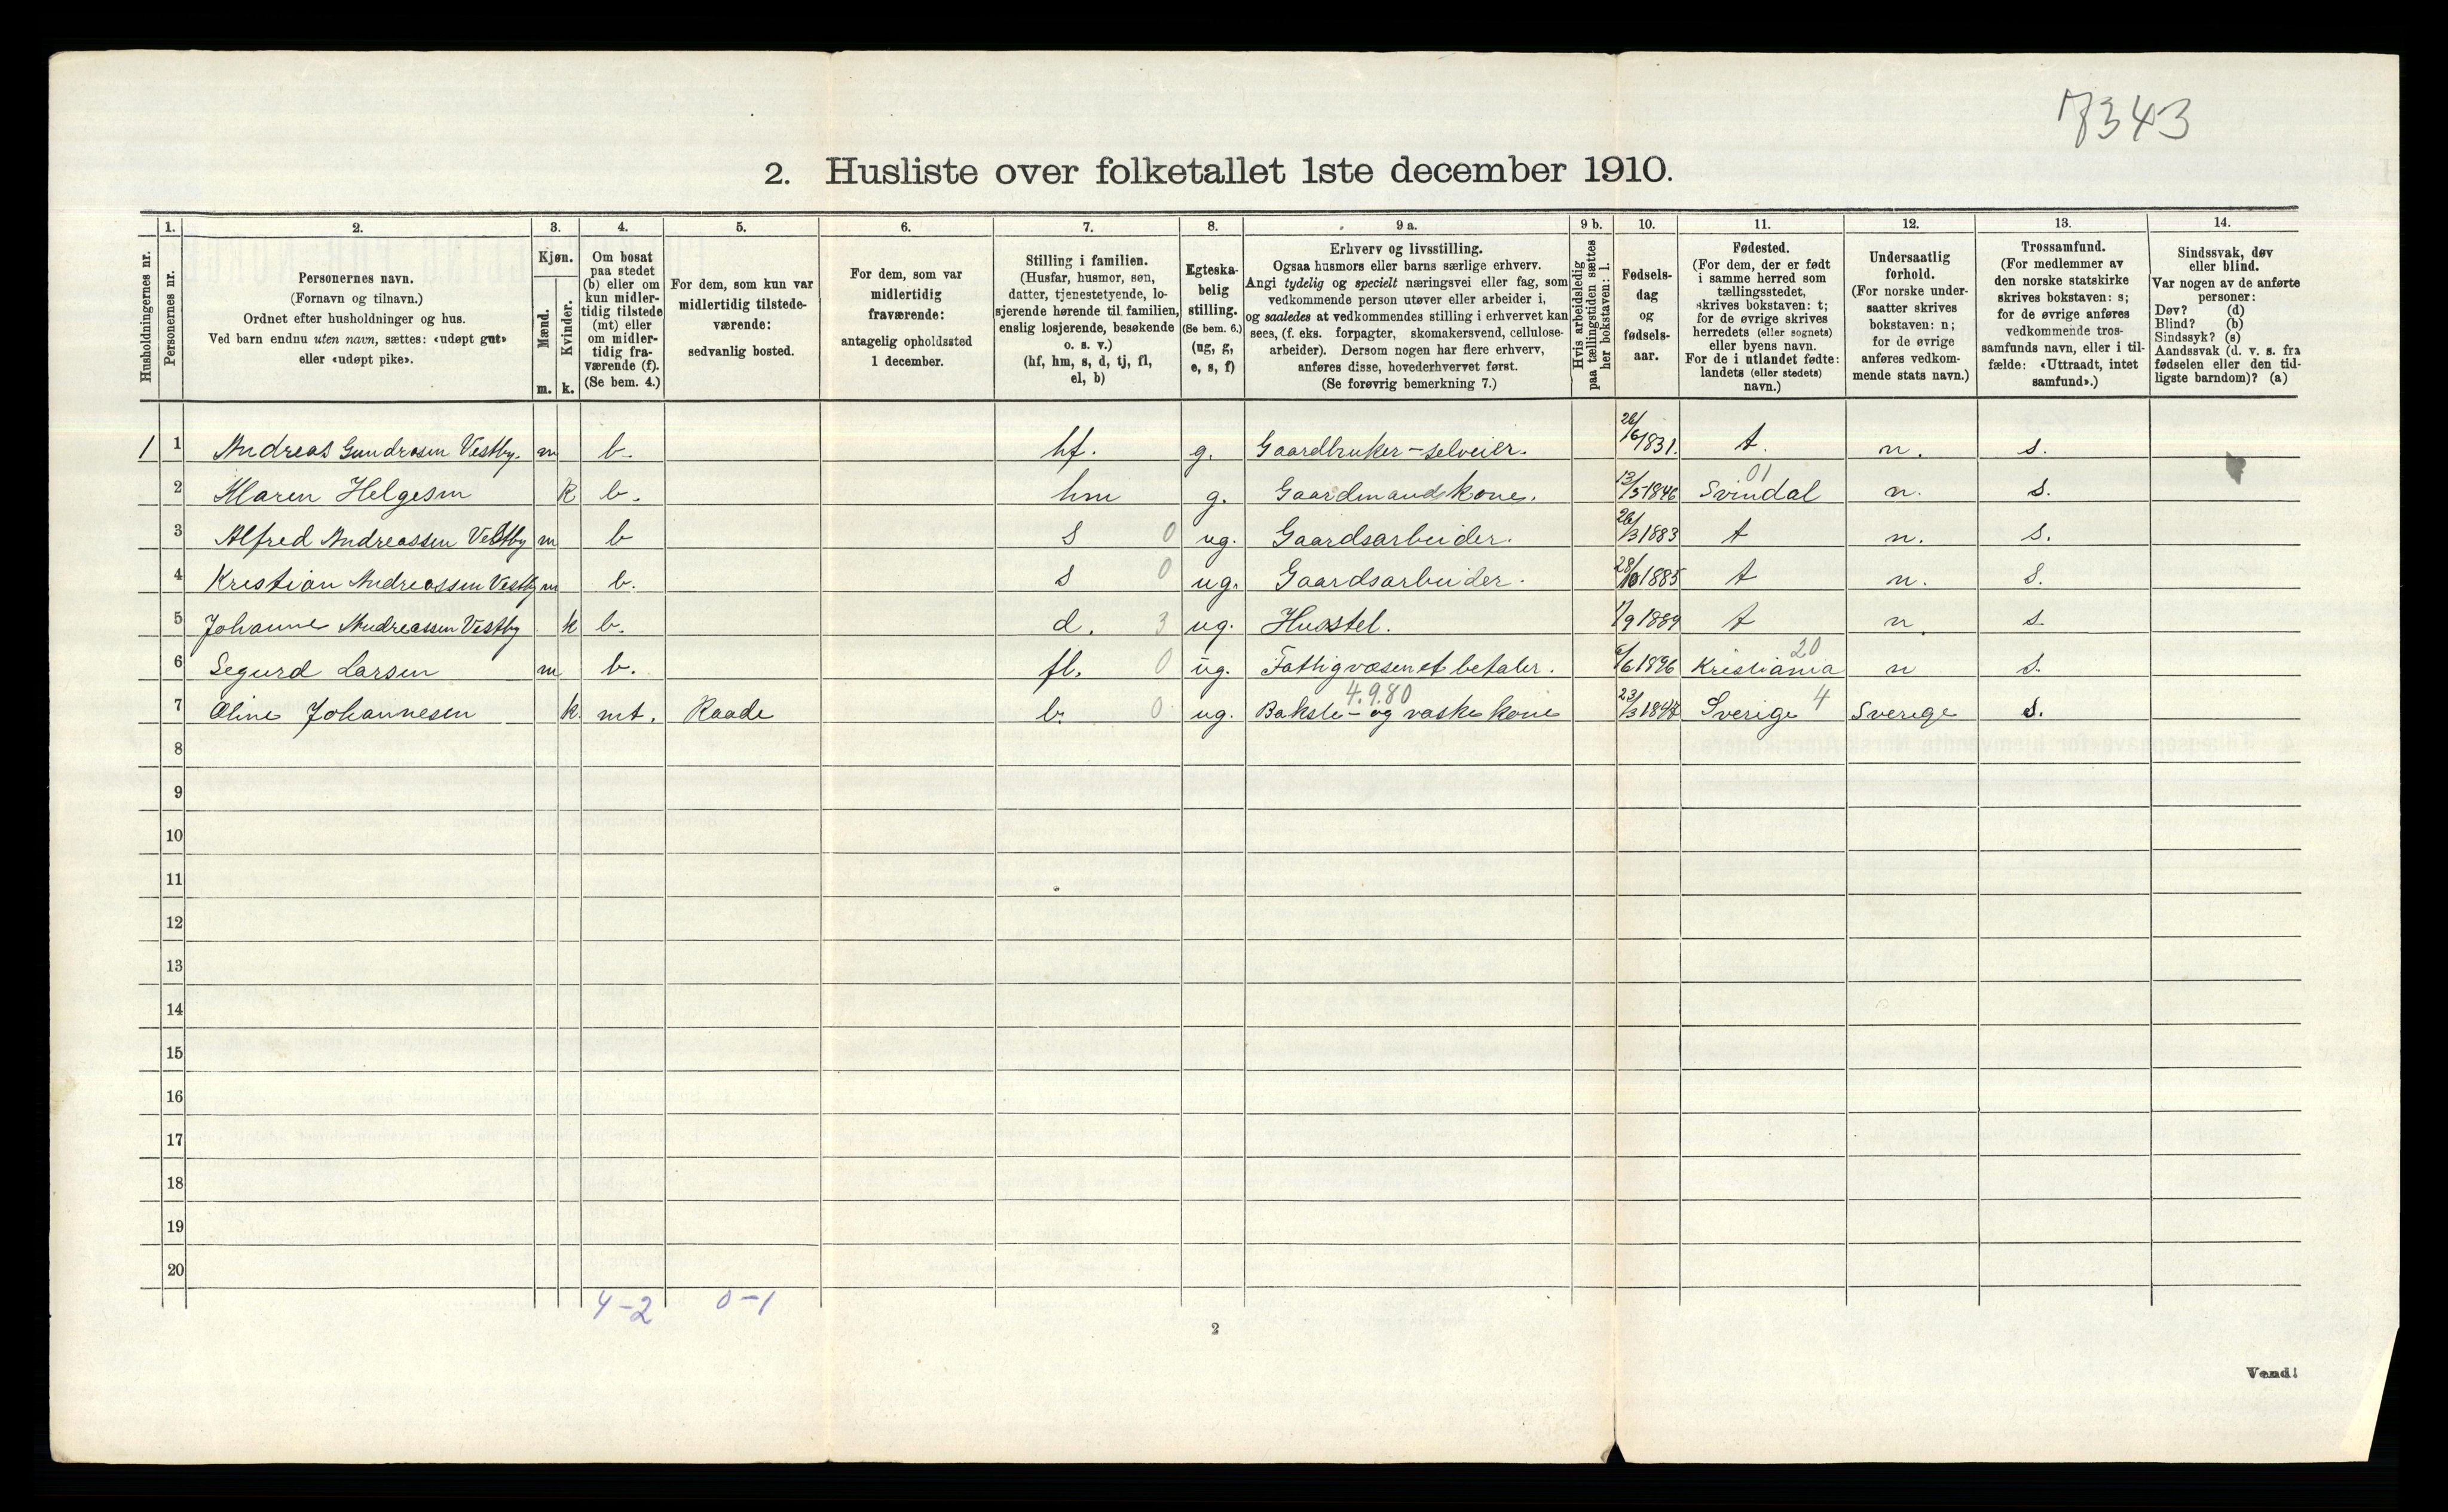 7343
2. Husliste over folketallet 1ste december 1910.
Husholdningernes nr.
1.
Personernes nr.
2.
Personernes navn.
(Fornavn og tilnavn.)
Ordnet efter husholdninger og hus.
Ved barn endnu uten navn, sættes: «udøpt gut»
eller «udøpt pike».
3.
Kjøn.
Mænd.
m.
Kvinder.
k.
4.
Om bosat
paa stedet
(b) eller om
kun midler-
tidig tilstede
(mt) eller
om midler-
tidig fra-
værende (f).
(Se bem. 4.)
5.
For dem, som kun var
midlertidig tilstede-
værende:
sedvanlig bosted.
6.
For dem, som var
midlertidig
fraværende:
antagelig opholdssted
1 december.
7.
Stilling i familien.
(Husfar, husmor, søn,
datter, tjenestetyende, lo-
sjerende hørende til familien,
enslig losjerende, besøkende
o. s. v.)
(hf, hm, s, d, tj, fl,
el, b)
8.
Egteska-
belig
stilling.
(Se bem. 6.)
(ug, g,
e, s, f)
9 a.
Erhverv og livsstilling.
Ogsaa husmors eller barns særlige erhverv.
Angi tydelig og specielt næringsvei eller fag, som
vedkommende person utøver eller arbeider i,
og saaledes at vedkommendes stilling i erhvervet kan
sees, (f. eks. forpagter, skomakersvend, cellulose-
arbeider). Dersom nogen har flere erhverv,
anføres disse, hovederhvervet først.
(Se forøvrig bemerkning 7.)
9 b.
Hvis arbeidsledig
paa tællingstiden sættes
her bokstaven: l.
10.
Fødsels-
dag
og
fødsels-
aar.
11.
Fødested.
(For dem, der er født
i samme herred som
tællingsstedet,
skrives bokstaven: t;
for de øvrige skrives
herredets (eller sognets)
eller byens navn.
For de i utlandet fødte:
landets (eller stedets)
navn.)
12.
Undersaatlig
forhold.
(For norske under-
saatter skrives
bokstaven: n;
for de øvrige
anføres vedkom-
mende stats navn.)
13.
Trossamfund.
(For medlemmer av
den norske statskirke
skrives bokstaven: s;
for de øvrige anføres
vedkommende tros-
samfunds navn, eller i til-
fælde: «Uttraadt, intet
samfund».)
14.
Sindssvak, døv
eller blind.
Var nogen av de anførte
personer:
Døv? (d)
Blind? (b)
Sindssyk? (s)
Aandssvak (d. v. s. fra
fødselen eller den tid-
ligste barndom)? (a)
1 1 Andreas Gundrosen Vestby. m b. hf. g. Gaardbruker - selveier. 26/6 1831. t. n. s.
2 Maren Helgesen k b. hm g. Gaardmandskone. 13/5 1846 Svindal 01 n. s.
3 Alfred Andreassen Vestby m b s 0 ug. Gaardsarbeider. 26/3 1883 t n. s.
4 Kristian Andreassen Vestby m b. s 0 ug. Gaardsarbeider. 28/10 1885 t n. s.
5 Johanne Andreassen Vestby k b. d. 3 ug. Husstel. 1/9 1889 t n. s
6 Segurd Larsen m b. fl. 0 ug. Fattigvæsenet betaler. 6/6 1896 Kristiania 20 n s.
7 Oline Johannesen k. mt. Raade b. 0 ug. Bakste- og vaskekone 4.9.80 23/3 1847 Sverige 4 Sverige s.
8
9
10
11
12
13
14
15
16
17
18
19
20
4-2 0-1
2
Vend!